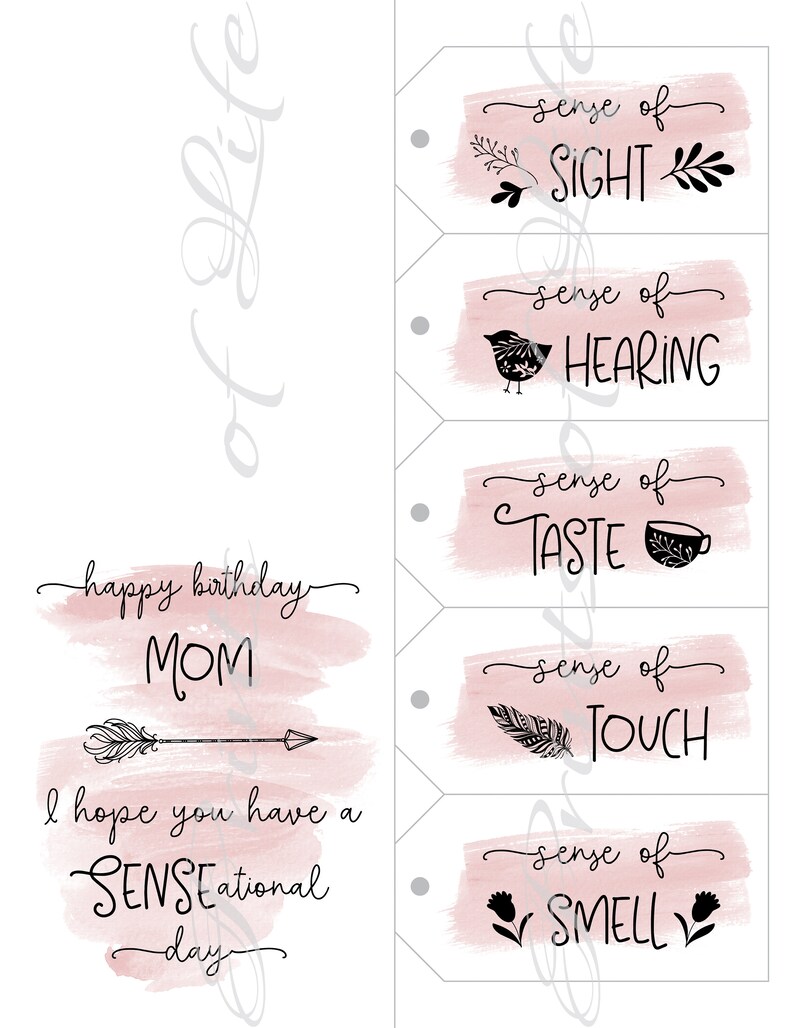 happy birthday
MOM
I hope you have a
SENSEational
day
sense of
SiGHT
sense of
HEARiNG
sense of
TASTE
sense of
TOUCH
sense of
SMELL
Fruits of Life
Fruits of Life